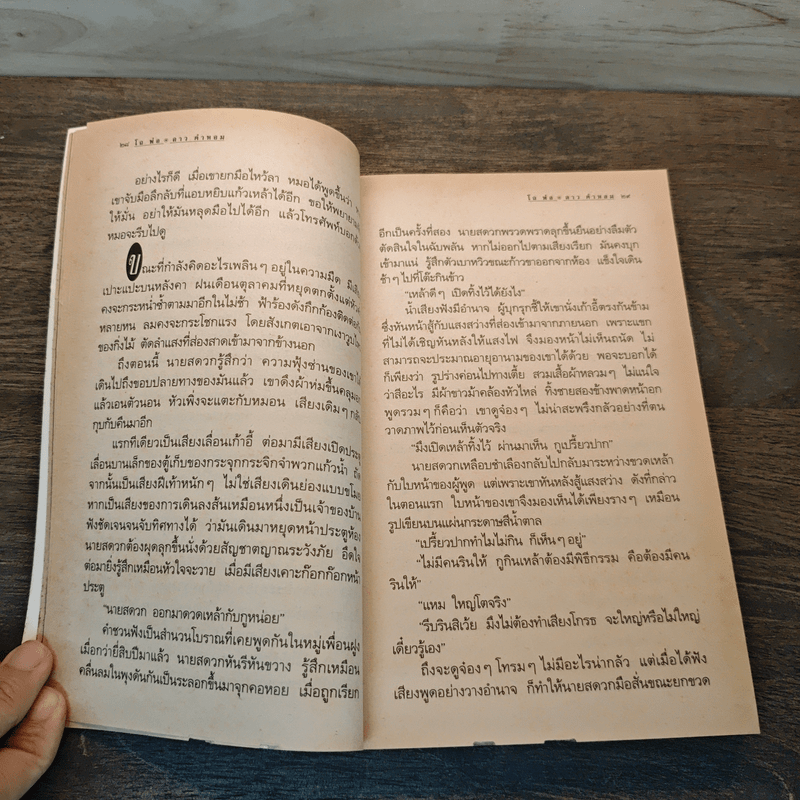 ๒๘ โบ ฟอ ๏ ดาว คำหอม
อย่างไรก็ดี เมื่อเขายกมือไหว้ลา หมอได้พูดขึ้นว่า
เขาจับมือลึกลับที่แอบหยิบแก้วเหล้าได้อีก ขอให้พยายาม
ให้มั่น อย่าให้มันหลุดมือไปได้อีก แล้วโทรศัพท์บอก
หมอจะรีบไปดู
ขณะที่กำลังคิดอะไรเพลินๆ อยู่ในความมืด
เปาะแปะบนหลังคา ฝนเดือนตุลาคมที่หยุดตกตั้งแต่
คงจะกระหน่ำซ้ำตามมาอีกในไม่ช้า ฟ้าร้องดังกึกก้องติดต่อ
หลายหน ลมคงจะกระโชกแรง โดยสังเกตเอาจากเงาวูบ
ของกิ่งไม้ ตัดลำแสงที่ส่องสาดเข้ามาจากข้างนอก
ถึงตอนนี้ นายสดวกรู้สึกว่า ความฟุ้งซ่านของเขา
เดินไปถึงขอบปลายทางของมันแล้ว เขาดึงผ้าห่มขึ้นคลุม
แล้วเอนตัวนอน หัวเพิ่งจะแตะกับหมอน เสียงเดิมๆ
กุบกับคืนมาอีก
แรกทีเดียวเป็นเสียงเลื่อนเก้าอี้ ต่อมามีเสียงเปิด
เลื่อนบานเล็กของตู้เก็บของกระจุกกระจิกจำพวกแก้วน้ำ
จากนั้นเป็นเสียงฝีเท้าหนักๆ ไม่ใช่เสียงเดินย่องแบบขโมย
หากเป็นเสียงของการเดินลงส้นเหมือนหนึ่งเป็นเจ้าของบ้าน
ฟังชัดเจนจนจับทิศทางได้ ว่ามันเดินมาหยุดหน้าประตูห้อง
นายสดวกต้องผุดลุกขึ้นนั่งด้วยสัญชาตญาณระวังภัย อึดใจ
ต่อมายิ่งรู้สึกเหมือนหัวใจจะวาย เมื่อมีเสียงเคาะก๊อกก๊อกหน้า
ประตู
“นายสดวก ออกมาดวดเหล้ากับกูหน่อย”
คำชวนฟังเป็นสำนวนโบราณที่เคยพูดกันในหมู่เพื่อนฝูง
เมื่อกว่ายี่สิบปีมาแล้ว นายสดวกหันรีหันขวาง รู้สึกเหมือน
คลื่นลมในพุงดันกันเป็นระลอกขึ้นมาจุกคอหอย เมื่อถูกเรียก
โบ ฟอ ๏ ดาว คำหอม ๒๙
อีกเป็นครั้งที่สอง นายสดวกพรวดพราดลุกขึ้นยืนอย่างลืมตัว
ตัดสินใจในฉับพลัน หากไม่ออกไปตามเสียงเรียก มันคงบุก
เข้ามาแน่ รู้สึกตัวเบาหวิวขณะก้าวขาออกจากห้อง แข็งใจเดิน
ช้าๆ ไปที่โต๊ะกินข้าว
“เหล้าดีๆ เปิดทิ้งไว้ได้ยังไง”
น้ำเสียงฟังมีอำนาจ ผู้บุกรุกชี้ให้เขานั่งเก้าอี้ตรงกันข้าม
ซึ่งหันหน้าสู้กับแสงสว่างที่ส่องเข้ามาจากภายนอก เพราะแขก
ที่ไม่ได้เชิญหันหลังให้แสงไฟ จึงมองหน้าไม่เห็นถนัด ไม่
สามารถจะประมาณอายุอานามของเขาได้ด้วย พอจะบอกได้
ก็เพียงว่า รูปร่างค่อนไปทางเตี้ย สวมเสื้อผ้าหลวมๆ ไม่แน่ใจ
ว่าสีอะไร มีผ้าขาวม้าคล้องหัวไหล่ ทิ้งชายสองข้างพาดหน้าอก
พูดรวมๆ ก็คือว่า เขาดูจ๋องๆ ไม่น่าสะพรึงกลัวอย่างที่ตน
วาดภาพไว้ก่อนเห็นตัวจริง
“มึงเปิดเหล้าทิ้งไว้ ผ่านมาเห็น กูเปรี้ยวปาก”
นายสดวกเหลือบชำเลืองกลับไปกลับมาระหว่างขวดเหล้า
กับใบหน้าของผู้พูด แต่เพราะเขาหันหลังสู้แสงสว่าง ดังที่กล่าว
ในตอนแรก ใบหน้าของเขาจึงมองเห็นได้เพียงรางๆ เหมือน
รูปเขียนบนแผ่นกระดาษสีน้ำตาล
“เปรี้ยวปากทำไมไม่กิน ก็เห็นๆ อยู่”
“ไม่มีคนรินให้ กูกินเหล้าต้องมีพิธีกรรม คือต้องมีคน
รินให้”
“แหม ใหญ่โตจริง”
“รีบรินสิเว้ย มึงไม่ต้องทำเสียงโกรธ จะใหญ่หรือไม่ใหญ่
เดี๋ยวรู้เอง”
ถึงจะดูจ๋องๆ โทรมๆ ไม่มีอะไรน่ากลัว แต่เมื่อได้ฟัง
เสียงพูดอย่างวางอำนาจ ก็ทำให้นายสดวกมือสั่นขณะยกขวด